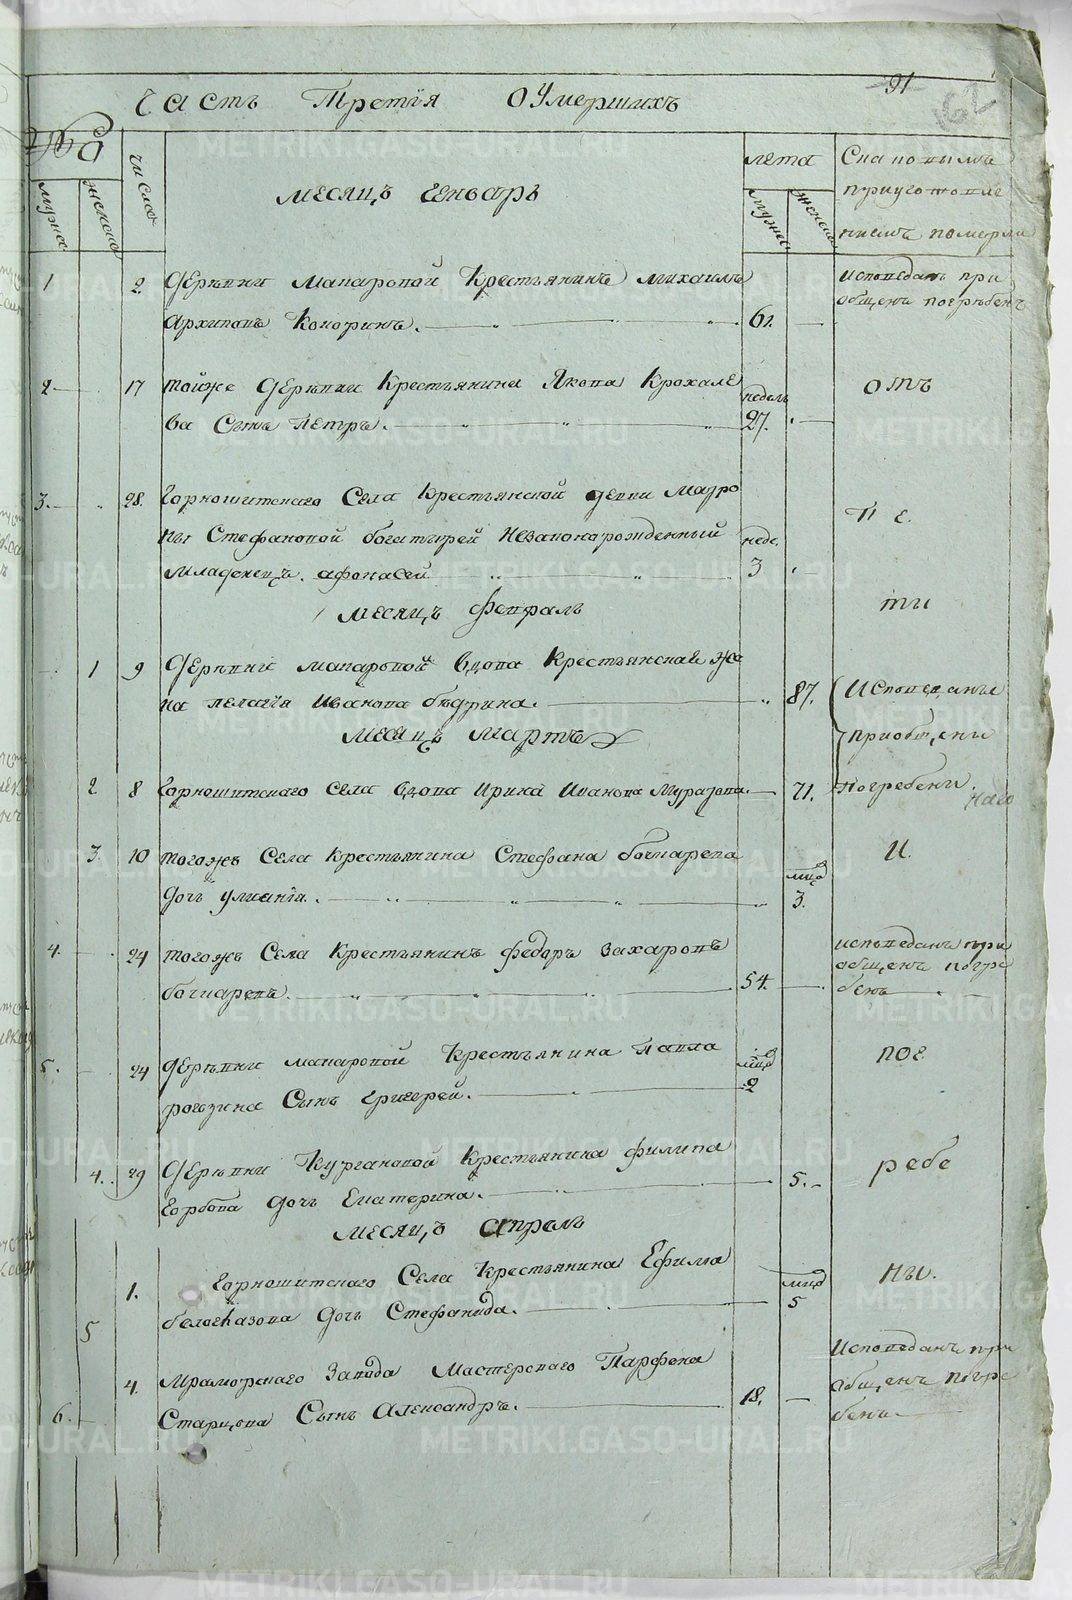 91
162
Часть Третїя О Умершихъ
мужес женска число
месяцъ Геньварь
лета
мужес женска
Снапопымъ
приугото
ниемъ померли
1 2 Деревни макаровой Крестьянинъ михаилъ
Архиповъ Кокоринъ. 61.
исповеданъ при
общенъ погрѣбенъ
2 17 тойже Деревни Крестьянина Якова Крохале
ва Сынъ Петръ. недель 27.
отъ
3. 28. Горнощитскаго Села Крестьянской девки Мавро
ны Стефановой богатырей Незаконорожденный
младенецъ афонасей неде. 3
пе.
месяцъ февраль
ти
1 9 Деревни макаровой вдова Крестьянская же
на пелагїя Иванова бедрина. 87.
Исповеданы
приобщены
погребены.
месяцъ мартъ
2 8 Горнощитскаго села вдова Ирина Иванова Мурзова. 71.
3. 10 тогожъ Села крестьянина Стефана бочкарева
дочь улианїя. мцо 3.
И.
4. 24 тогожъ Села Крестьянинъ федоръ Захаровъ
бочкаревъ. 54.
исповеданъ при
общенъ погре
бенъ
5. 24 Деревни макаровой Крестьянина Павла
рогозина Сынъ Григорей. мцо 2
пог
4. 29 Деревни Кургановой Крестьянина филипа
Горбова дочь Екатерина. 5.
ребе
месяцъ Апрель
5 1. Горнощитскаго Села Крестьянина Ефима
белоглазова дочь Стефанида. мцо 5
ны.
6. 4. Мраморскаго Завода Мастерскаго Парфена
Старцова Сынъ Александръ. 18.
Исповеданъ при
общенъ погре
бенъ
METRIKI.GASO-URAL.RU